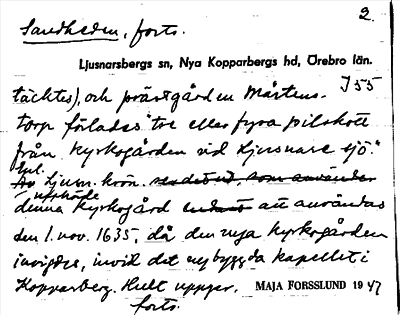 2.
Sandheden, forts.
Ljusnarsbergs sn, Nya Kopparbergs hd, Örebro län.
I 55
täcktes), och prästgården Mårtens-
torp förlades "tre eller fyra pilskott
från kyrkogården vid Ljusnare sjö."
Enl.
Av Ljusn. krön. som använder
upphörde
denna kyrkogård endast att användas
den 1. nov. 1635, då den nya kyrkogården
invigdes, invid det nybyggda kapellet i
Kopparberg. Hult uppger.
MAJA FORSSLUND 1947
forts.